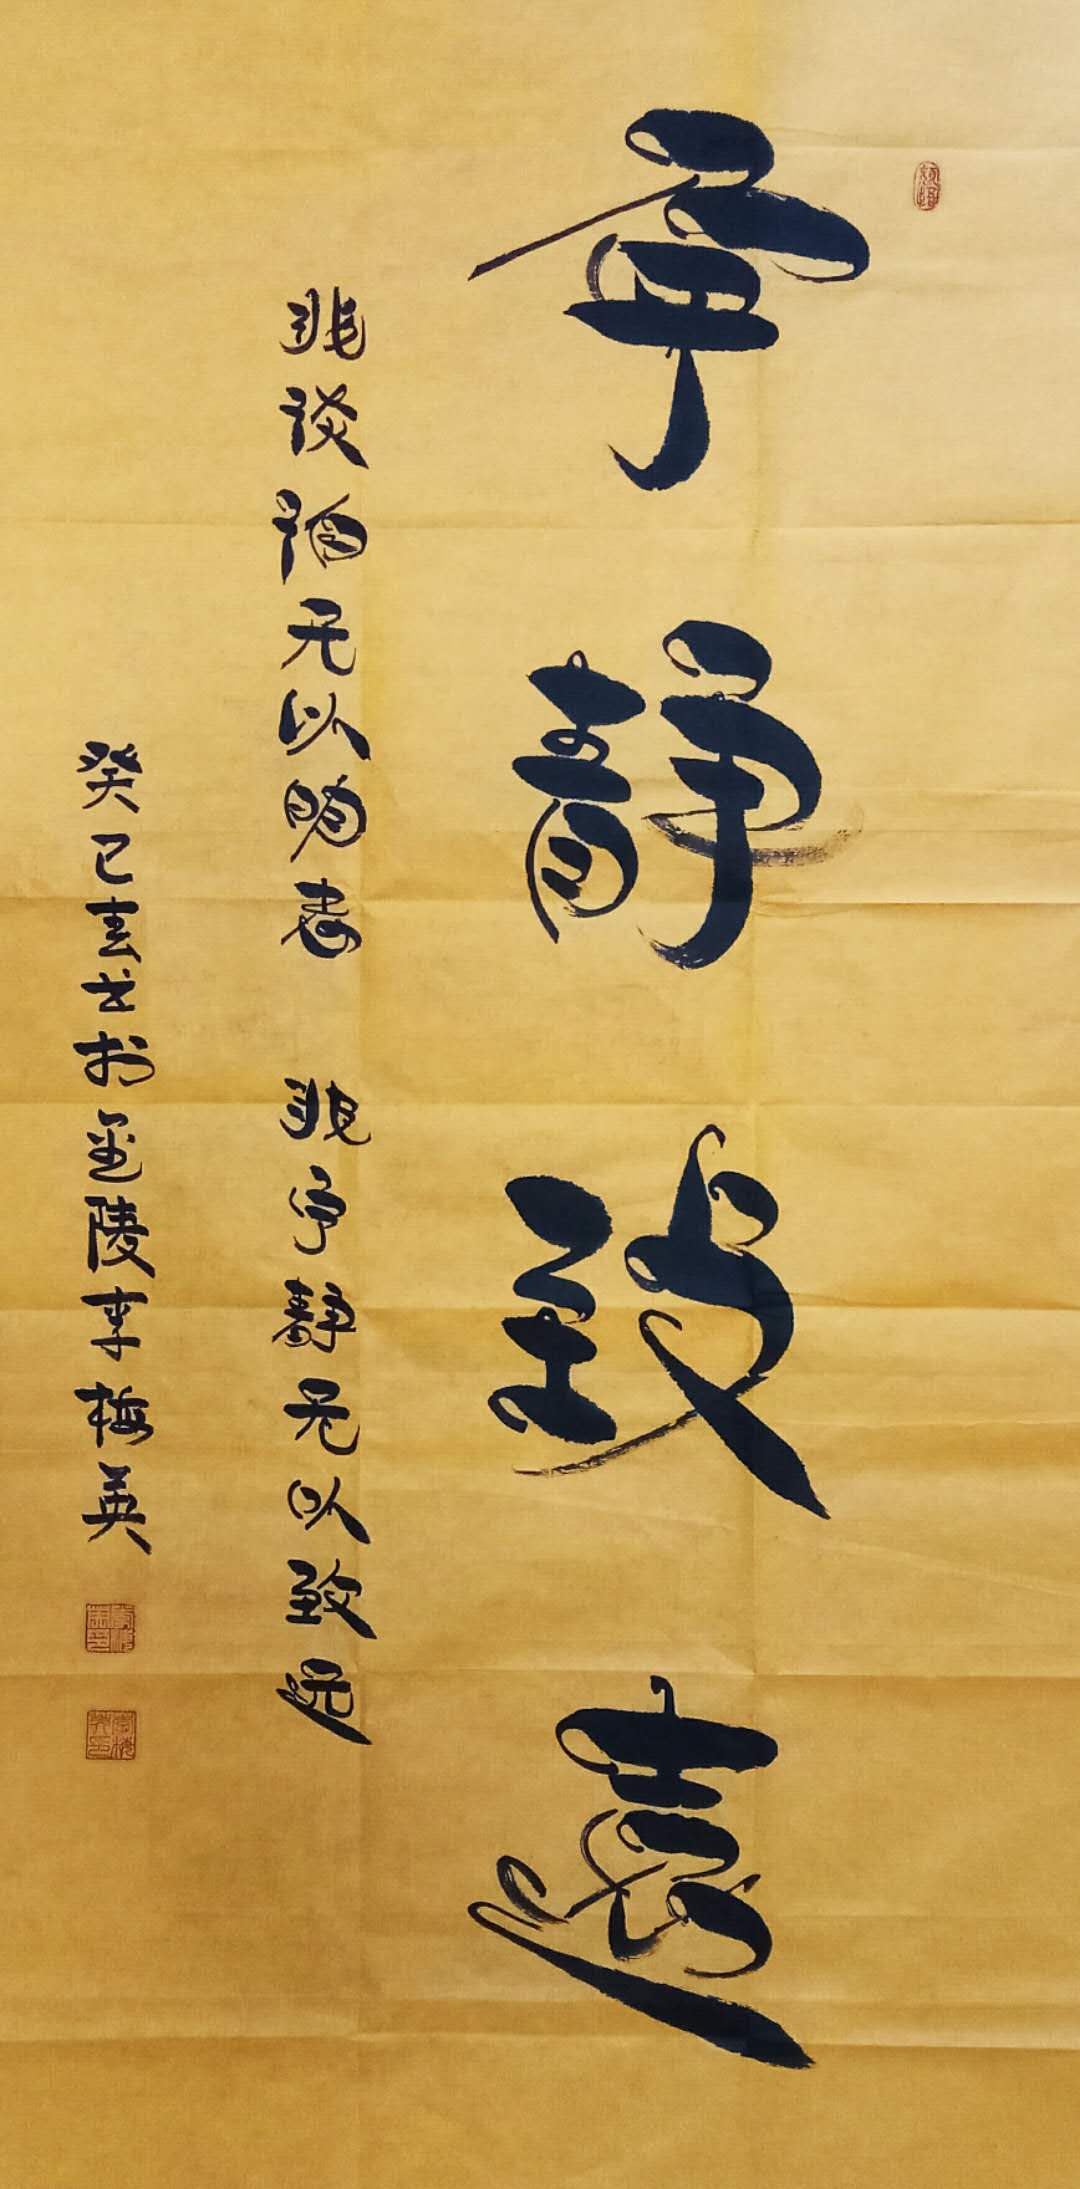 宁静致遠
非淡泊无以明志 非宁静无以致远
癸巳春书于金陵李梅英